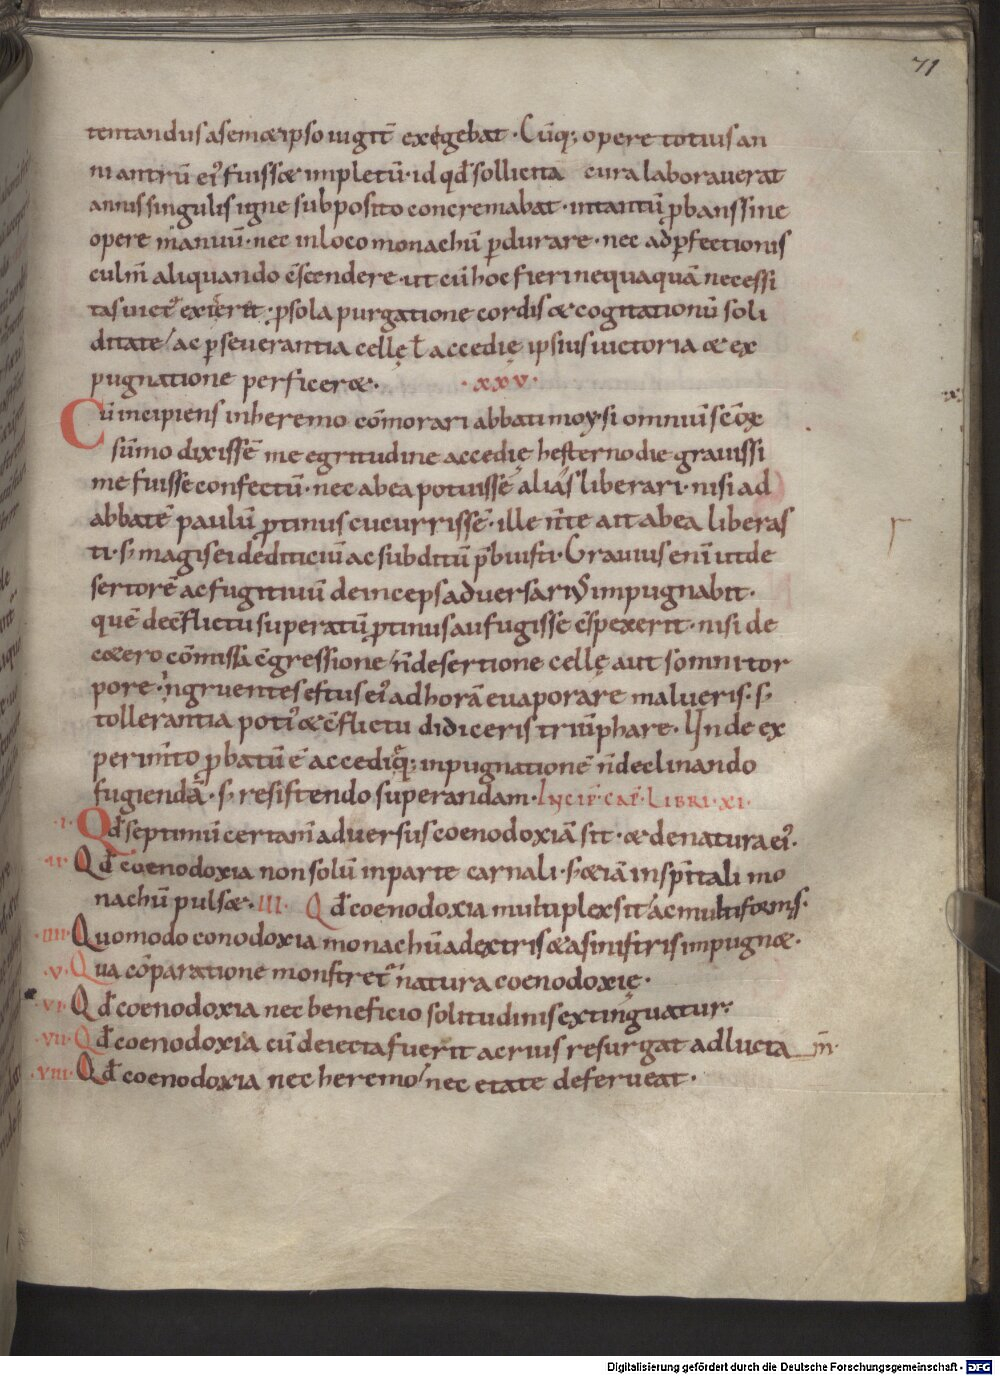 71
tentandus a semetipso iugit̄ exegebat · Cūq; opere totius an
ni antrū eiꝰ fuisset impletū · id qđ sollicita cura laborauerat
annis singulis igne subposito concremabat · intantū ꝓbans sine
opere manuū · nec in loco monachū ꝑdurare · nec ad ꝑfectionis
culm̄ aliquando c̄scendere · ut cū hoc fieri nequaquā necessi
tas uict⁹ exigerit · ꝓ sola purgatione cordis et cogitationū soli
ditate / ac ꝑseuerantia cellę ł accedię ipsius uictoria et ex
pugnatione perficeret · · xxv ·
Cū incipiens in heremo cōmorari abbati moysi omniū sc̄ox
sūmo dixissē me egritudine accedię hesterno die grauissi
me fuisse confectū · nec ab ea potuisse alias liberari · nisi ad
abbatē paulū ꝓtinus cucurrissē · ille n̄ te ait ab ea liberas
ti · s; magis ei dediticiū ac subditū p̄buisti · Grauius enī ut de
sertorē ac fugitiuū deinceps aduersariꝰ impugnabit ·
quē dec̄flictu superatū ꝓtinus aufugisse c̄spexerit · nisi de
cetero cōmissa c̄gressione / n̄ desertione cellę aut somni tor
pore · īngruentes estus eiꝰ ad horā euaporare malueris · s;
tollerantia potiꝰ et c̄flictu didiceris triūphare · Vnde ex
perim̄to ꝓbatū ē accedięq; inpugnationē n̄ declinando
fugiendā · s; resistendo superandam · Incip̄ · cap̄ · Libri · xi ·
· i · Qđ septimū certam̄ aduersus coenodoxiā sit · et de natura eiꝰ ·
· ii · Qđ coenodoxia non solū in parte carnali · s; etiā in sp̄itali mo
nachū pulset · III · Qđ coenodoxia multiplex sit / ac multiformis ·
· iiii · Quomodo conodoxia monachū a dextris et a sinistris impugnet ·
· v · Qua cōparatione monstret̄ natura coenodoxię ·
· vi · Qđ coenodoxia nec beneficio solitudinis extinguatur ·
· vii · Qđ coenodoxia cū deiecta fuerit acrius resurgat ad lucta m̄ ·
· viii · Qđ coenodoxia nec heremo / nec etate deferueat ·
Digitalisierung gefördert durch die Deutsche Forschungsgemeinschaft - DFG